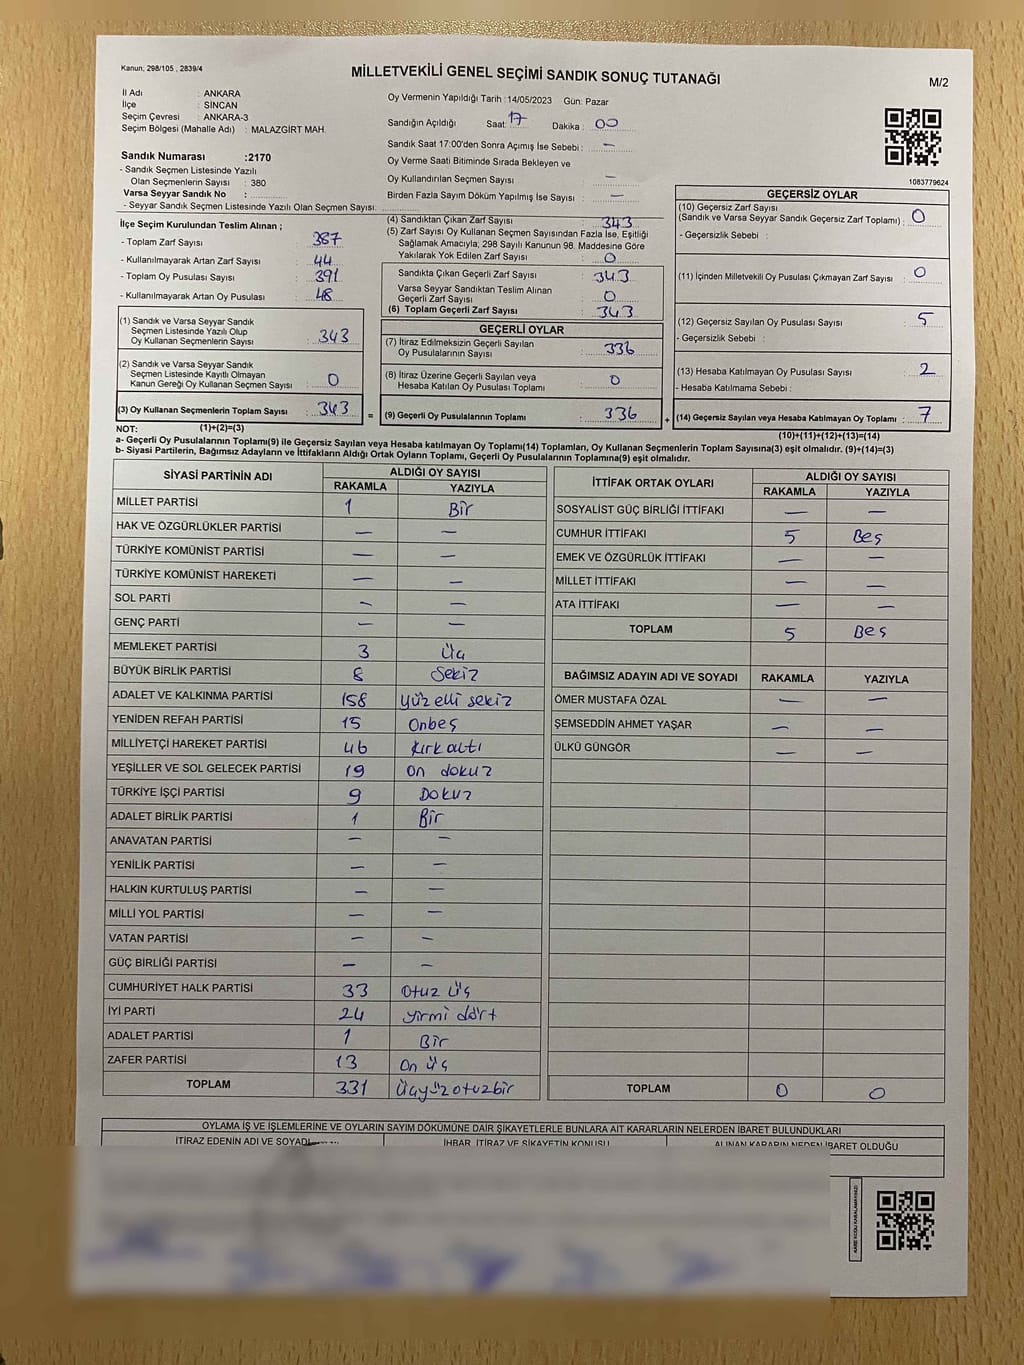 Kanun; 298/105 , 2839/4
MİLLETVEKİLİ GENEL SEÇİMİ SANDIK SONUÇ TUTANAĞI
M/2
İl Adı : ANKARA
İlçe : SİNCAN
Seçim Çevresi : ANKARA-3
Seçim Bölgesi (Mahalle Adı) : MALAZGİRT MAH.
Oy Vermenin Yapıldığı Tarih : 14/05/2023 Gün: Pazar
Sandığın Açıldığı Saat: 17 Dakika : 00
Sandık Saat 17:00'den Sonra Açımış İse Sebebi : —
Oy Verme Saati Bitiminde Sırada Bekleyen ve
Oy Kullandırılan Seçmen Sayısı : —
Birden Fazla Sayım Döküm Yapılmış İse Sayısı : —
1083779624
Sandık Numarası :2170
- Sandık Seçmen Listesinde Yazılı
Olan Seçmenlerin Sayısı : 380
Varsa Seyyar Sandık No :
- Seyyar Sandık Seçmen Listesinde Yazılı Olan Seçmen Sayısı:
İlçe Seçim Kurulundan Teslim Alınan ;
- Toplam Zarf Sayısı : 387
- Kullanılmayarak Artan Zarf Sayısı : 44
- Toplam Oy Pusulası Sayısı : 391
- Kullanılmayarak Artan Oy Pusulası : 48
(1) Sandık ve Varsa Seyyar Sandık
Seçmen Listesinde Yazılı Olup
Oy Kullanan Seçmenlerin Sayısı : 343
(2) Sandık ve Varsa Seyyar Sandık
Seçmen Listesinde Kayıtlı Olmayan
Kanun Gereği Oy Kullanan Seçmen Sayısı : 0
(3) Oy Kullanan Seçmenlerin Toplam Sayısı : 343
(1)+(2)=(3)
(4) Sandıktan Çıkan Zarf Sayısı : 343
(5) Zarf Sayısı Oy Kullanan Seçmen Sayısından Fazla İse, Eşitliği
Sağlamak Amacıyla; 298 Sayılı Kanunun 98. Maddesine Göre
Yakılarak Yok Edilen Zarf Sayısı : 0
Sandıkta Çıkan Geçerli Zarf Sayısı : 343
Varsa Seyyar Sandıktan Teslim Alınan
Geçerli Zarf Sayısı : 0
(6) Toplam Geçerli Zarf Sayısı : 343
GEÇERLİ OYLAR
(7) İtiraz Edilmeksizin Geçerli Sayılan
Oy Pusulalarının Sayısı : 336
(8) İtiraz Üzerine Geçerli Sayılan veya
Hesaba Katılan Oy Pusulası Toplamı : 0
= (9) Geçerli Oy Pusulalarının Toplamı : 336
GEÇERSİZ OYLAR
(10) Geçersiz Zarf Sayısı
(Sandık ve Varsa Seyyar Sandık Geçersiz Zarf Toplamı) : 0
- Geçersizlik Sebebi :
(11) İçinden Milletvekili Oy Pusulası Çıkmayan Zarf Sayısı : 0
(12) Geçersiz Sayılan Oy Pusulası Sayısı : 5
- Geçersizlik Sebebi :
(13) Hesaba Katılmayan Oy Pusulası Sayısı : 2
- Hesaba Katılmama Sebebi :
+ (14) Geçersiz Sayılan veya Hesaba Katılmayan Oy Toplamı : 7
(10)+(11)+(12)+(13)=(14)
NOT:
a- Geçerli Oy Pusulalarının Toplamı(9) ile Geçersiz Sayılan veya Hesaba katılmayan Oy Toplamı(14) Toplamları, Oy Kullanan Seçmenlerin Toplam Sayısına(3) eşit olmalıdır. (9)+(14)=(3)
b- Siyasi Partilerin, Bağımsız Adayların ve İttifakların Aldığı Ortak Oyların Toplamı, Geçerli Oy Pusulalarının Toplamına(9) eşit olmalıdır.
SİYASİ PARTİNİN ADI ALDIĞI OY SAYISI
RAKAMLA YAZIYLA
MİLLET PARTİSİ 1 Bir
HAK VE ÖZGÜRLÜKLER PARTİSİ — —
TÜRKİYE KOMÜNİST PARTİSİ — —
TÜRKİYE KOMÜNİST HAREKETİ — —
SOL PARTİ — —
GENÇ PARTİ — —
MEMLEKET PARTİSİ 3 Üç
BÜYÜK BİRLİK PARTİSİ 8 Sekiz
ADALET VE KALKINMA PARTİSİ 158 yüz elli sekiz
YENİDEN REFAH PARTİSİ 15 Onbeş
MİLLİYETÇİ HAREKET PARTİSİ 46 kırk altı
YEŞİLLER VE SOL GELECEK PARTİSİ 19 on dokuz
TÜRKİYE İŞÇİ PARTİSİ 9 Dokuz
ADALET BİRLİK PARTİSİ 1 Bir
ANAVATAN PARTİSİ — —
YENİLİK PARTİSİ — —
HALKIN KURTULUŞ PARTİSİ — —
MİLLİ YOL PARTİSİ — —
VATAN PARTİSİ — —
GÜÇ BİRLİĞİ PARTİSİ — —
CUMHURİYET HALK PARTİSİ 33 otuz üç
İYİ PARTİ 24 yirmi dört
ADALET PARTİSİ 1 Bir
ZAFER PARTİSİ 13 On üç
TOPLAM 331 Üçyüzotuzbir
İTTİFAK ORTAK OYLARI ALDIĞI OY SAYISI
RAKAMLA YAZIYLA
SOSYALİST GÜÇ BİRLİĞİ İTTİFAKI — —
CUMHUR İTTİFAKI 5 Beş
EMEK VE ÖZGÜRLÜK İTTİFAKI — —
MİLLET İTTİFAKI — —
ATA İTTİFAKI — —
TOPLAM 5 Beş
BAĞIMSIZ ADAYIN ADI VE SOYADI RAKAMLA YAZIYLA
ÖMER MUSTAFA ÖZAL — —
ŞEMSEDDİN AHMET YAŞAR — —
ÜLKÜ GÜNGÖR — —
TOPLAM 0 0
OYLAMA İŞ VE İŞLEMLERİNE VE OYLARIN SAYIM DÖKÜMÜNE DAİR ŞİKAYETLERLE BUNLARA AİT KARARLARIN NELERDEN İBARET BULUNDUKLARI
İTİRAZ EDENİN ADI VE SOYADI İHBAR, İTİRAZ VE ŞİKAYETİN KONUSU ALINAN KARARIN NEDEN İBARET OLDUĞU